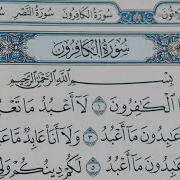 سُورَةُ الكَافِرُونَ سُورَةُ النَّصْرِ
سُورَةُ الكَافِرُونَ
بِسْمِ اللَّهِ الرَّحْمَٰنِ الرَّحِيمِ
الْكَٰفِرُونَ ١ لَآ أَعْبُدُ مَا
عَٰبِدُونَ مَآ أَعْبُدُ ٣ وَلَآ أَنَا۠ عَابِدٌ مَّا
عَٰبِدُونَ مَآ أَعْبُدُ ٥ لَكُمْ دِينُكُمْ